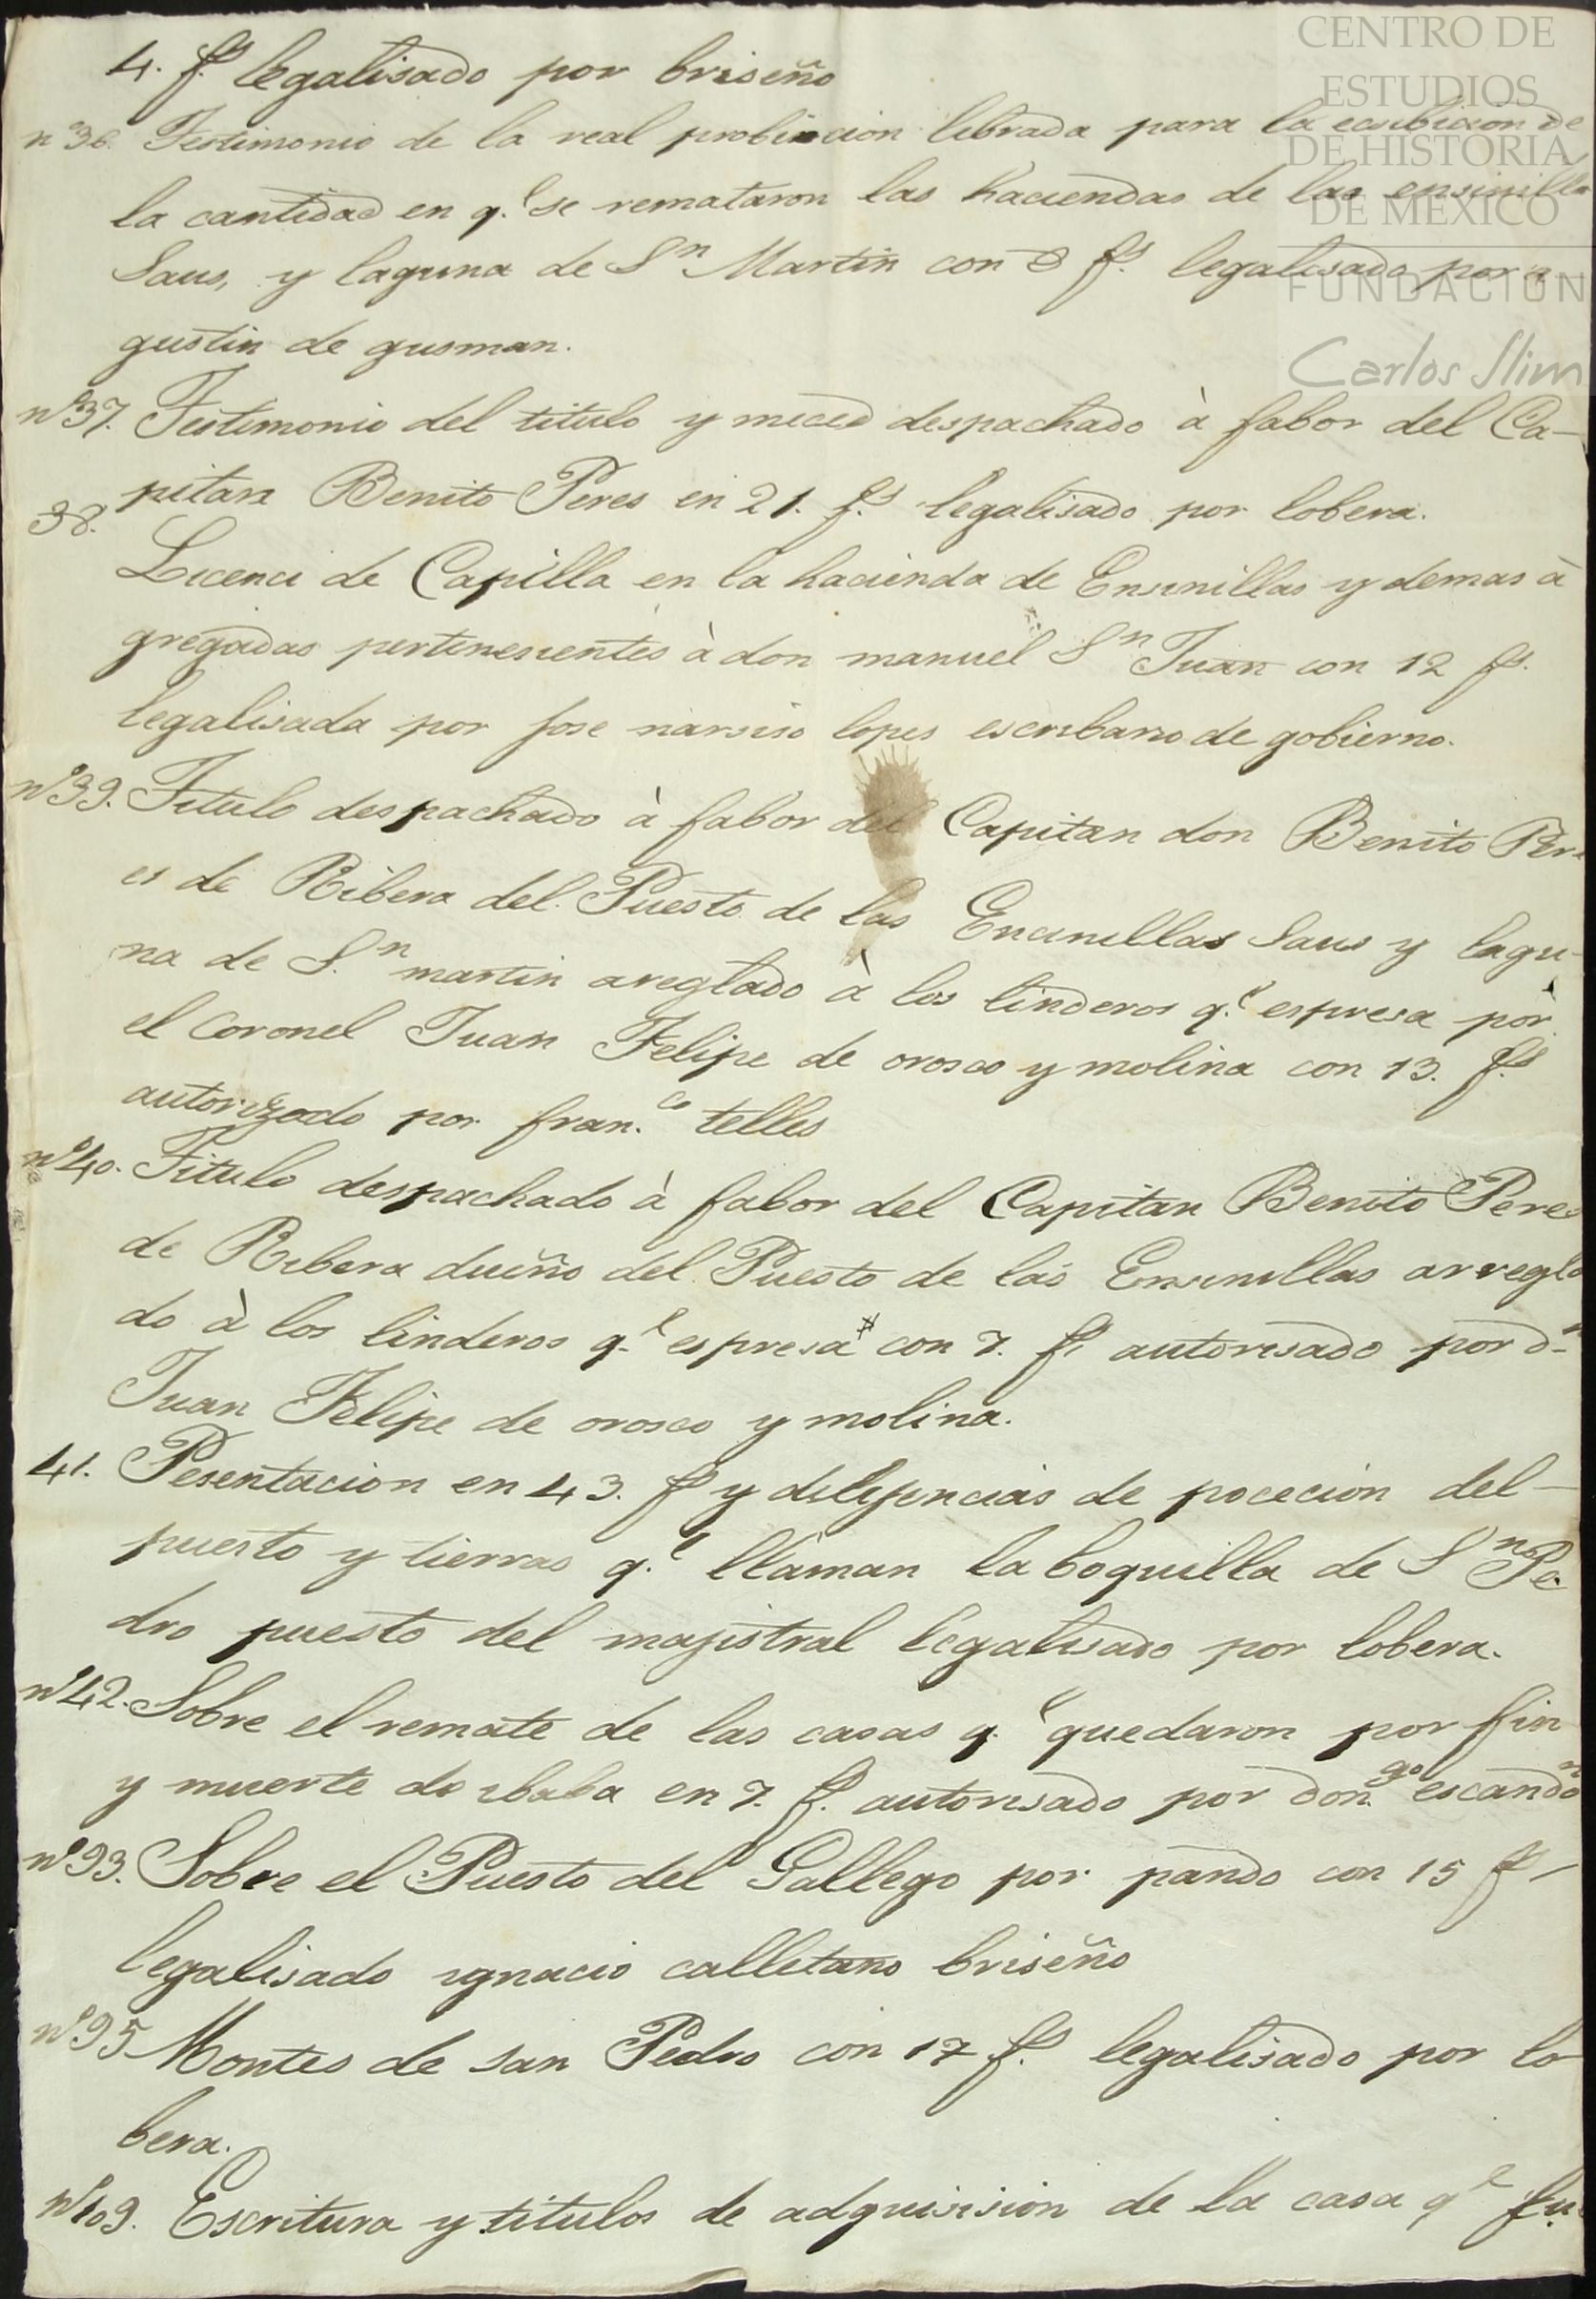 CENTRO DE
ESTUDIOS
DE HISTORIA
DE MEXICO
FUNDACION
Carlos Slim
4. fs. legalisado por briseño
nº 36. Testimonio de la real probicion librada para la ecsibicion de
la cantidad en q.e se remataron las haciendas de las ensinilla
Saus, y laguna de Sn Martin con 8 fs. legalisado por a
gustin de gusman.
nº 37. Testimonio del titulo y meced despachado à fabor del Ca-
pitan Benito Peres en 21. fs. legalisado por lobera.
38.
Licenci de Capilla en la hacienda de Ensinillas y demas à
gregadas pertenesientes à don manuel Sn Juan con 12 fs.
legalisada por jose narsiso lopes escribano de gobierno.
nº 39. Titulo despachado à fabor del Capitan don Benito Per-
es de Ribera del Puesto de las Encinillas Saus y lagu-
na de S.n martin areglado à los linderos q.e espresa por
el coronel Juan Felipe de orosco y molina con 13. fs.
autorizado por fran.co telles
nº 40. Titulo despachado à fabor del Capitan Benito Peres
de Ribera dueño del Puesto de las Ensinillas arregla
do à los linderos q.e espresa # con 7. fs autorisado por dn
Juan Felipe de orosco y molina.
41. Pesentacion en 43. fs y delijencias de pocecion del-
puesto y tierras q.e llaman la boquilla de Sn Pe
dro puesto del majistral legalisado por lobera.
nº 42. Sobre el remate de las casas q.e quedaron por fin
y muerte de ibaba en 7. fs. autorisado por don.go escandon
nº 93. Sobre el Puesto del Gallego por pando con 15 fs
legalisado ygnacio calletano briseño
nº 95 Montes de san Pedro con 17 fs. legalisado por lo
bera.
nº 109. Escritura y titulos de adquisision de la casa qe fu